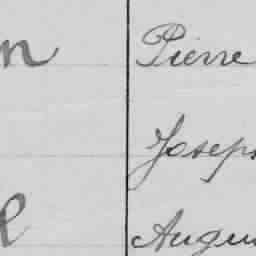 n Pierre
Joseph
l Augus